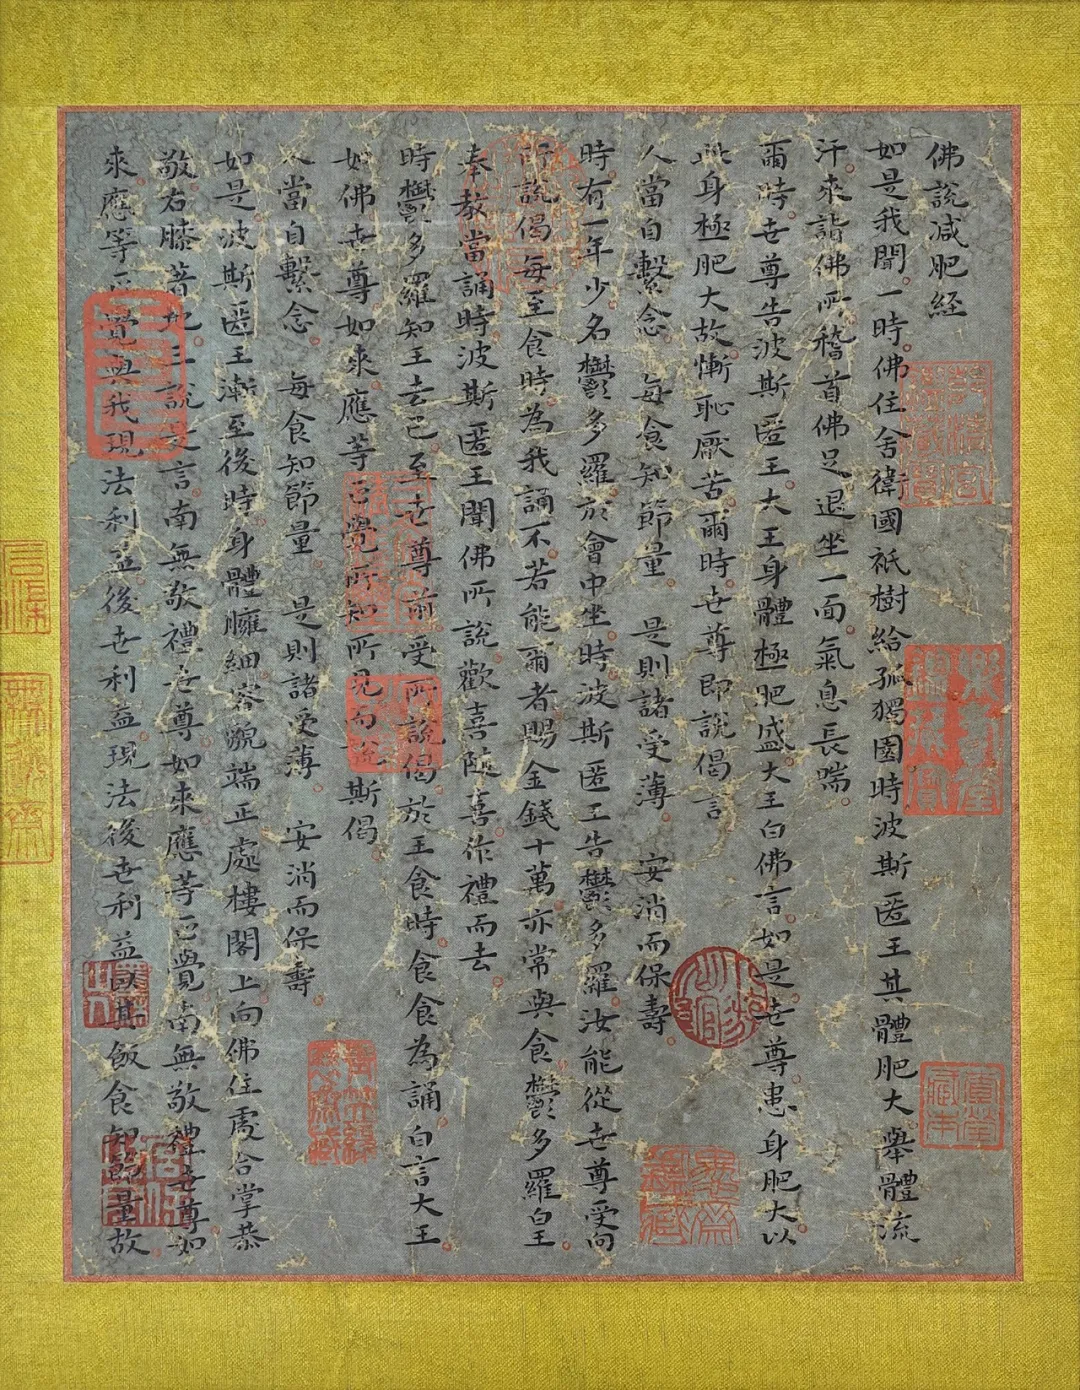 佛說減肥經
如是我聞一時佛住舍衛國祇樹給孤獨園時波斯匿王其體肥大舉體流
汗來詣佛所稽首佛足退坐一面氣息長喘
爾時世尊告波斯匿王大王身體極肥盛大王白佛言如是世尊患身肥大以
此身極肥大故慚恥厭苦爾時世尊即說偈言
人當自繫念 每食知節量 是則諸受薄 安消而保壽
時有一年少名鬱多羅於會中坐時波斯匿王告鬱多羅汝能從世尊受向
所說偈每至食時為我誦不若能爾者賜金錢十萬亦常與食鬱多羅皇王
奉教當誦時波斯匿王聞佛所說歡喜隨喜作禮而去
時鬱多羅知王去已至世尊前受所說偈於王食時食食為誦白言大王
如佛世尊如來應等正覺所知所見向說斯偈
人當自繫念 每食知節量 是則諸受薄 安消而保壽
如是波斯匿王漸至後時身體臃細容貌端正處樓閣上向佛住處合掌恭
敬右膝著地三說是言南無敬禮世尊如來應等正覺南無敬禮世尊如
來應等正覺與我現法利益後世利益現法後世利益以其飯食知節量故